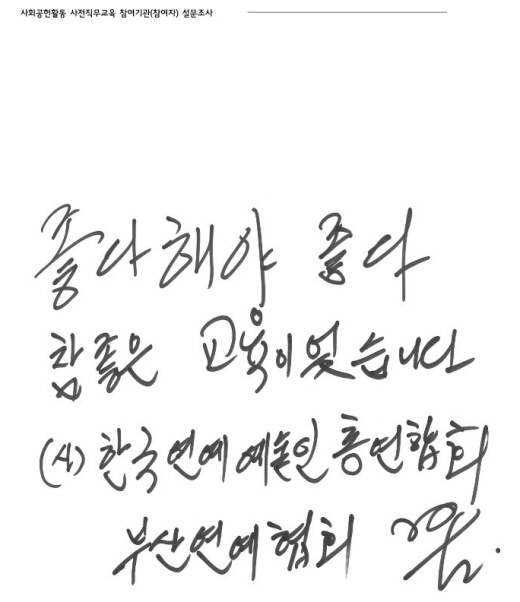 사회공헌활동 사전직무교육 참여기관(참여자) 설문조사
좋다해야 좋다
참좋은 교육이였습니다
(사) 한국연예예술인총연합회
부산연예협회